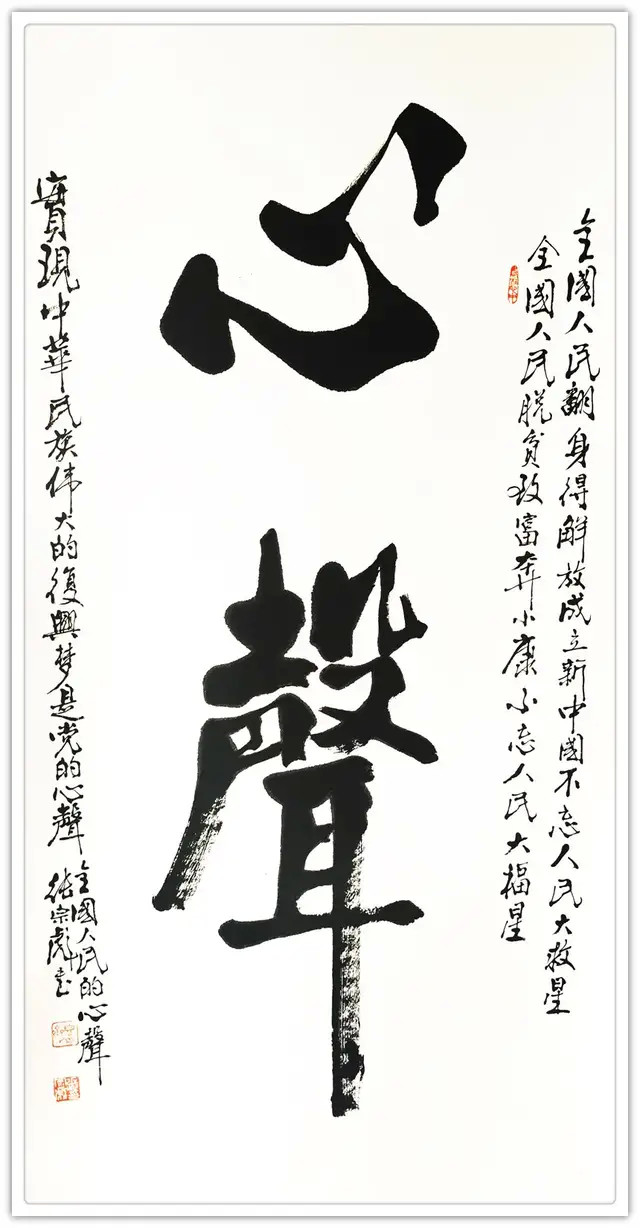 全國人民翻身得解放成立新中國不忘人民大救星
全國人民脱貧致富奔小康不忘人民大福星
心聲
實現中華民族偉大的復興梦是党的心聲
全國人民的心聲
張宗彪書